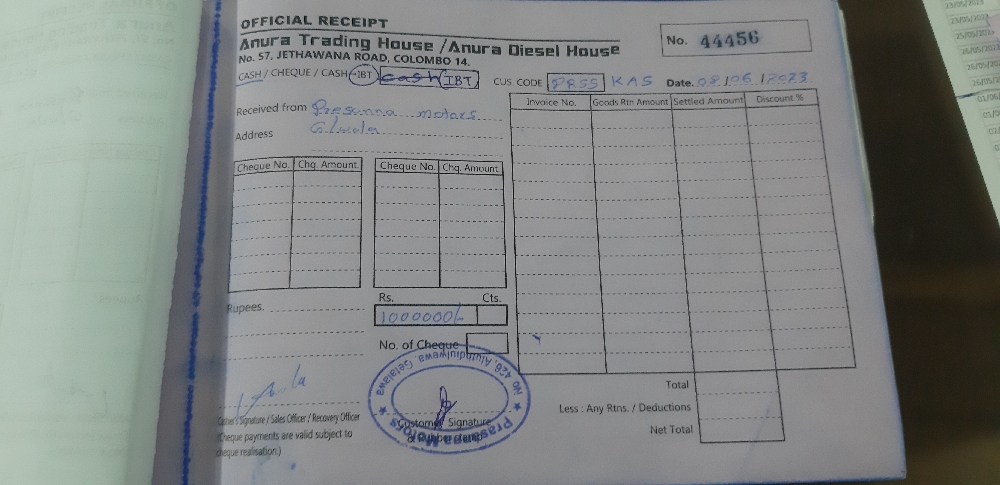 OFFICIAL RECEIPT
Anura Trading House / Anura Diesel House
No. 57, JETHAWANA ROAD, COLOMBO 14.
No. 44456
CASH / CHEQUE / CASH-IBT cash IBT CUS CODE PRSS KAS Date. 08/06/2023
Received from Presanna motors
Address
Invoice No. Goods Rtn Amount Settled Amount Discount %
Cheque No. Chq. Amount Cheque No. Chq. Amount
Rupees.
Rs. Cts.
1000000/-
No. of Cheque
No 426, Aluthdivulwewa, Galalawa
Prasanna Motors
Signature / Sales Officer / Recovery Officer
Customer Signature
(Cheque payments are valid subject to
cheque realisation.)
Total
Less : Any Rtns. / Deductions
Net Total
23/05/2023